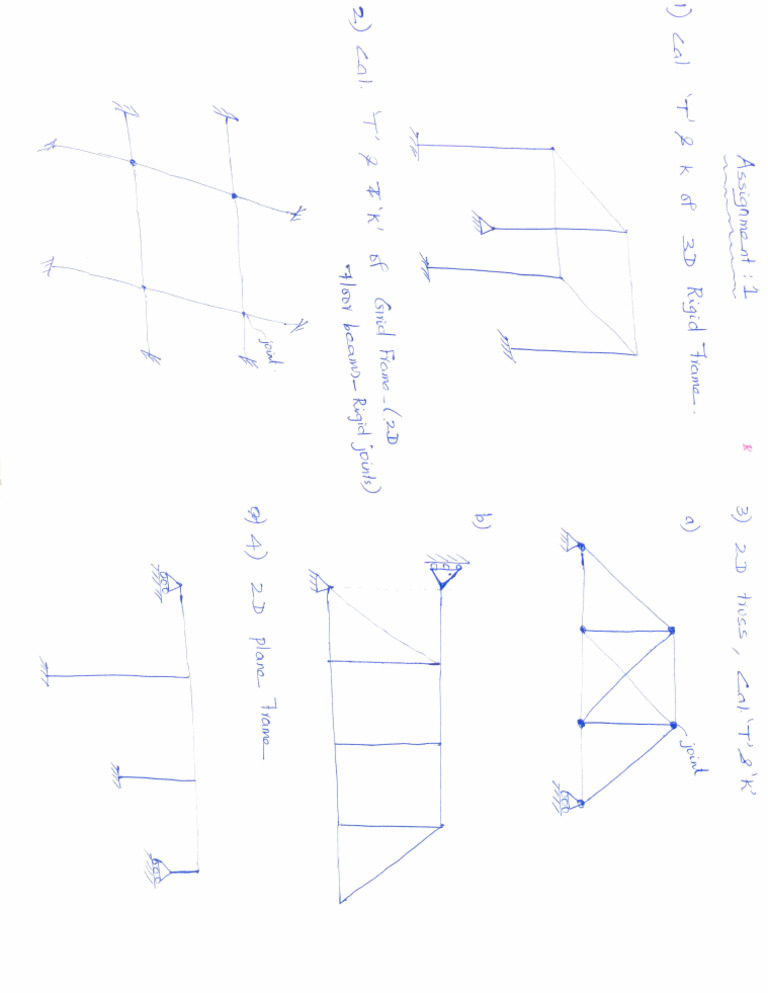 Assignment : 1
1) Cal 'T' & K of 3D Rigid Frame.
2.) Cal. 'T' & 'K' of Grid Frame - (2D
Floor beams - Rigid joints)
joint.
3) 2D truss, Cal. 'T' & 'K'
a)
joint
b)
4) 2D plane Frame